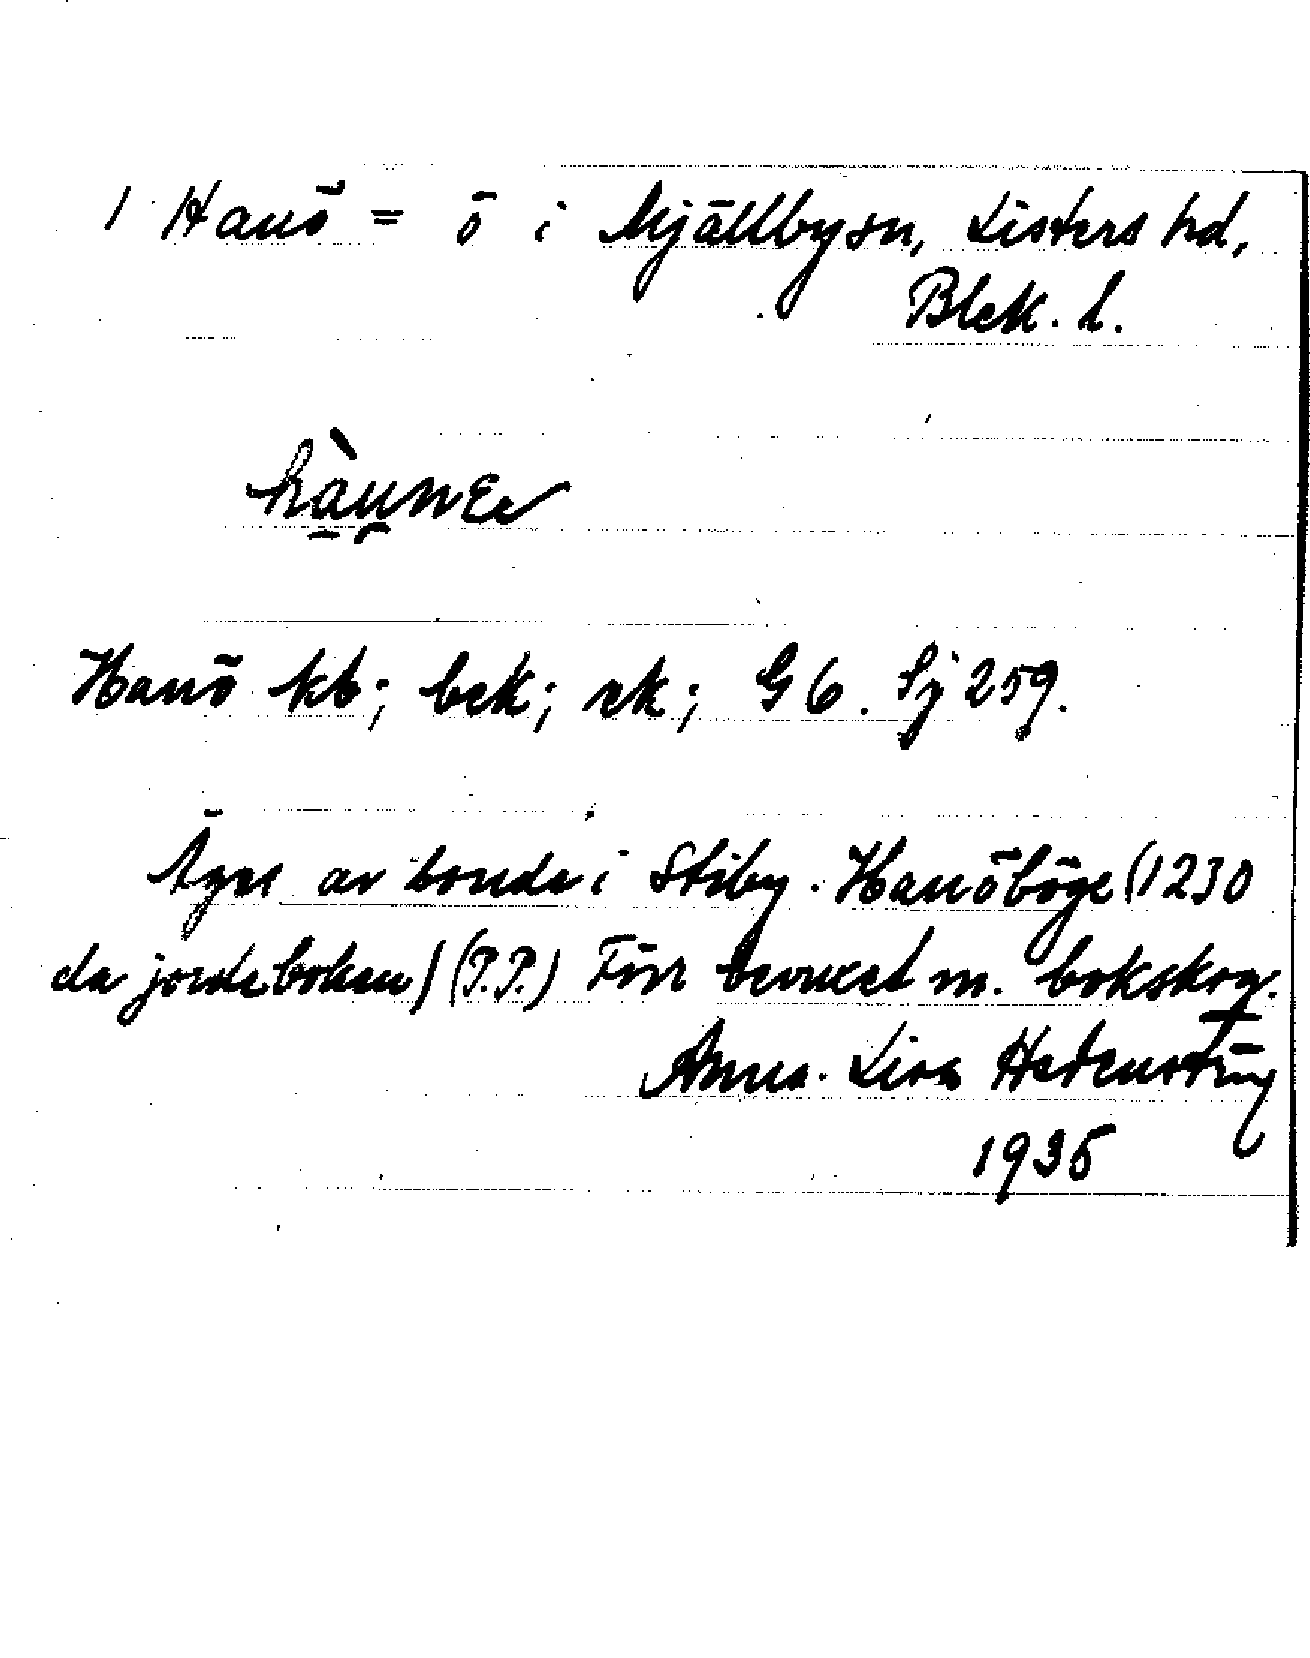 1 Hanö = ö i Mjällby sn, Listers hd,
Blek. l.
Hanö kb; bek; ek; G 6. Sj 259.
Äges av bönder i Stiby. Hanöböge (1230
da jordeboken) (P.P.) Förr bevuxet m. bokskog.
Anna-Lisa Hedenstryg
1935